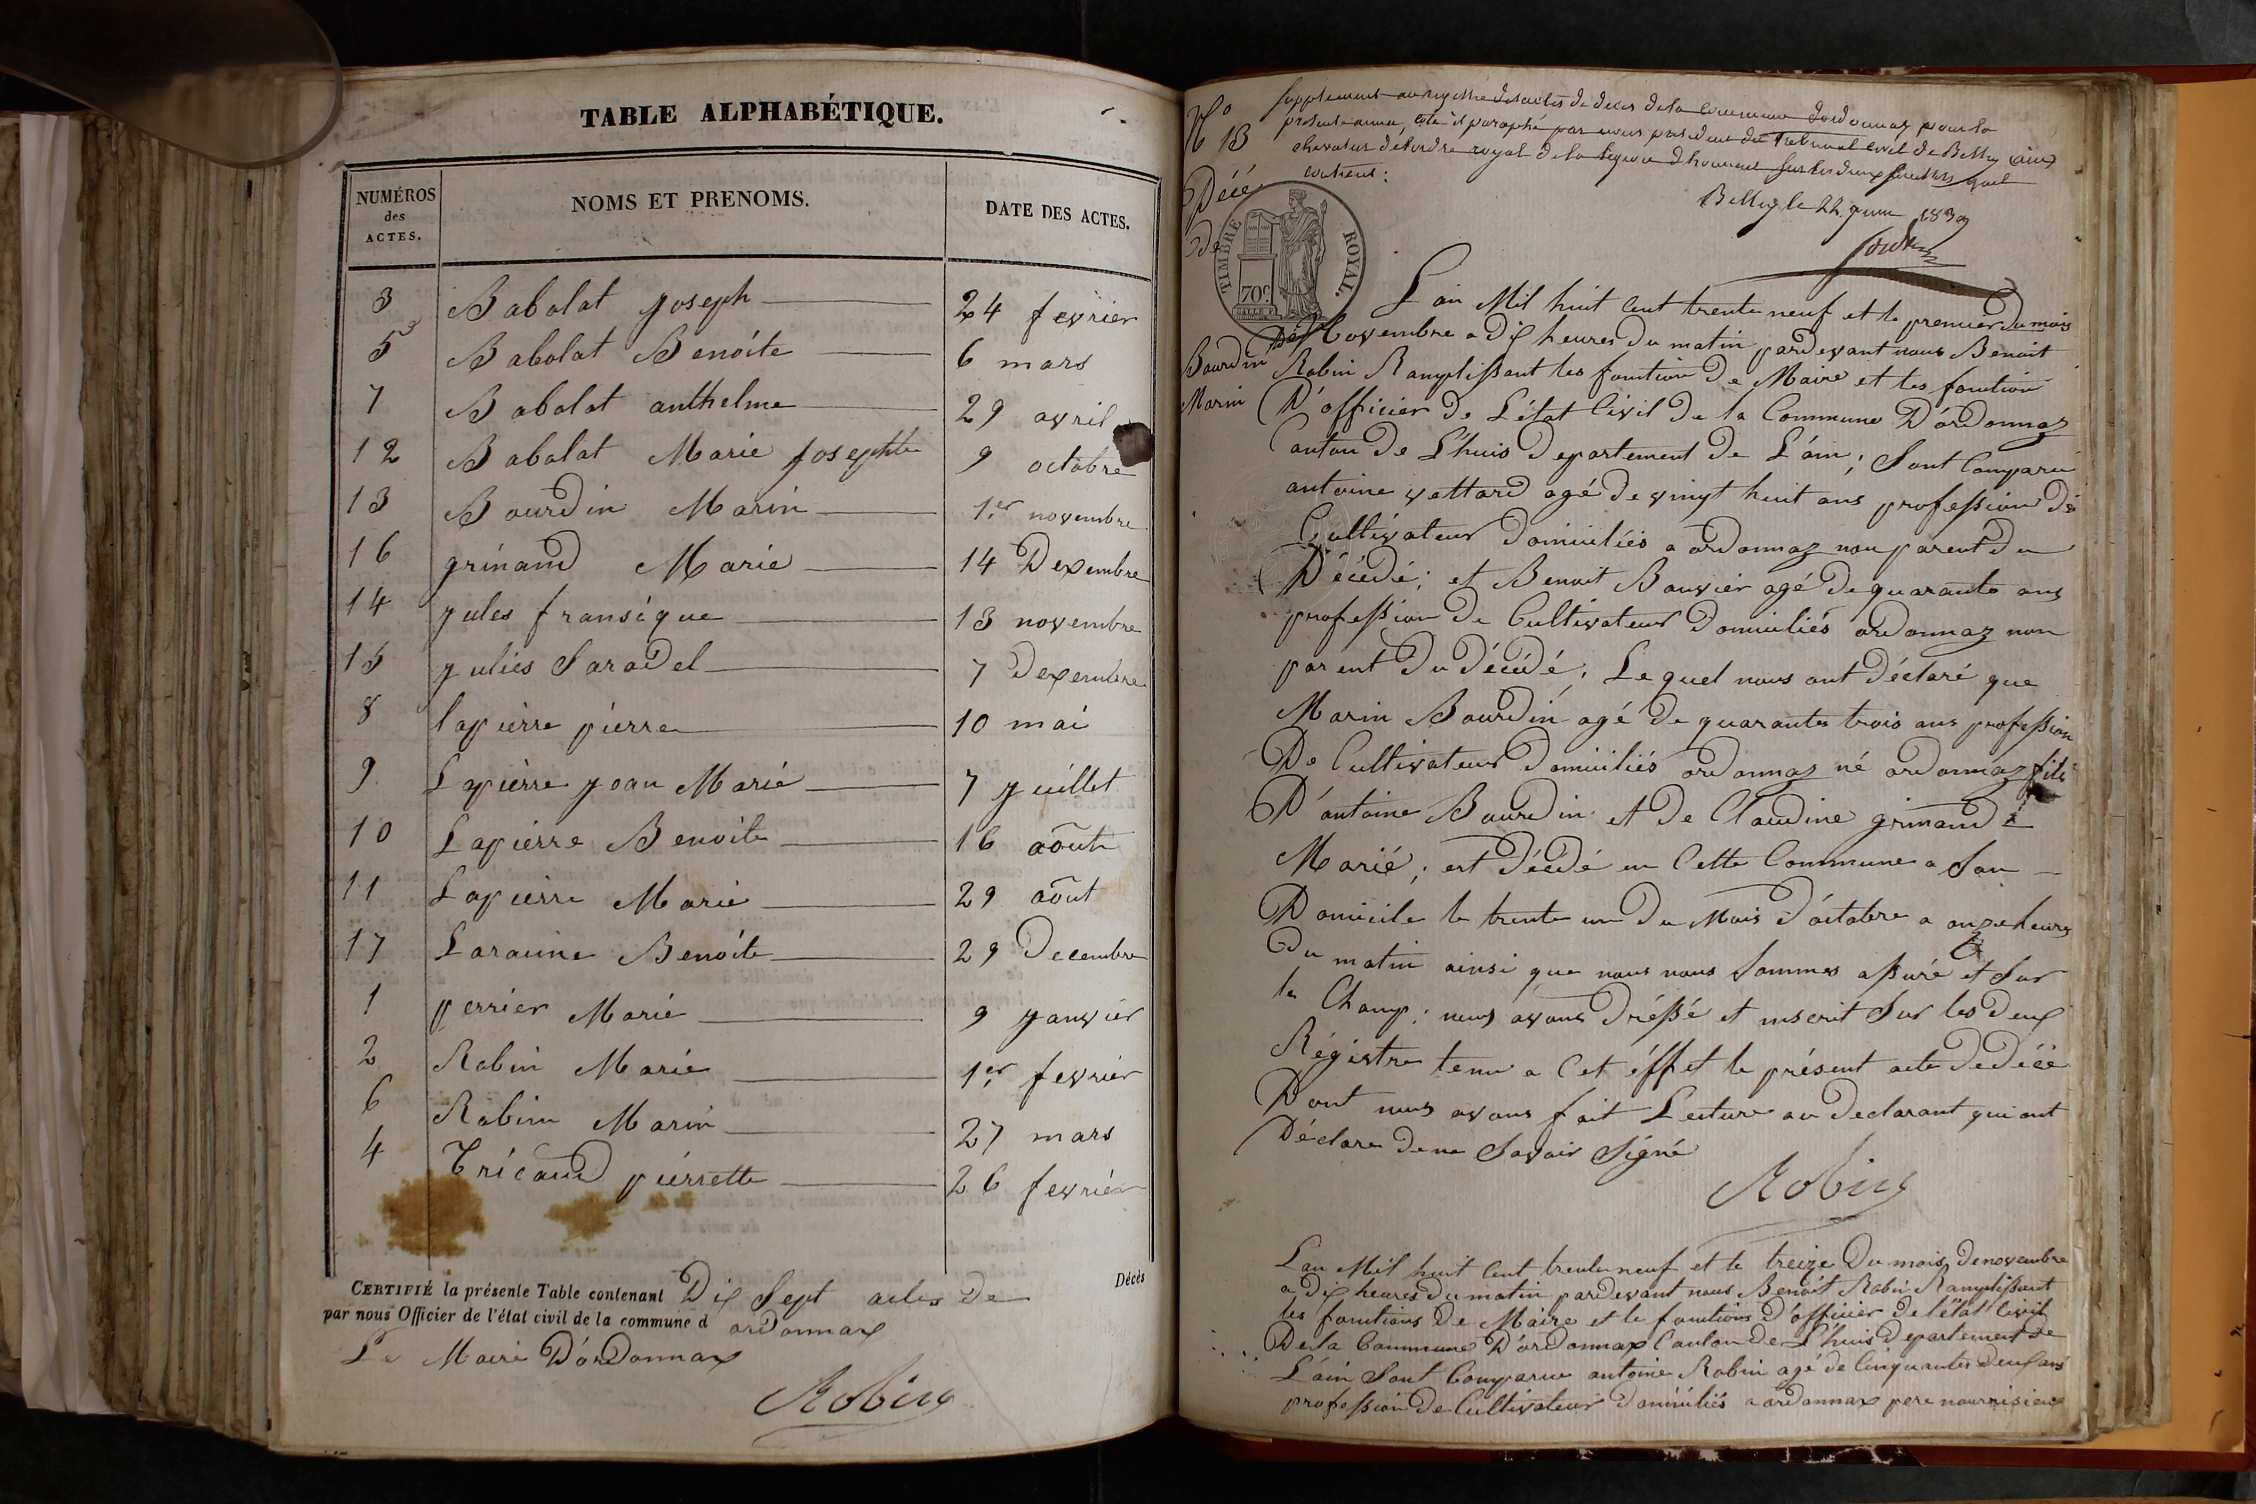 TABLE ALPHABÉTIQUE.
NUMÉROS des ACTES. NOMS ET PRENOMS. DATE DES ACTES.
3 Babolat Joseph 24 fevrier
5 Babolat Benoite 6 mars
7 Babolat anthelme 29 avril
12 Babolat Marie Josephte 9 octobre
13 Bourdin Marin 1er novembre
16 grinand Marie 14 Dexembre
14 Jules fransique 13 novembre
15 Julies Saradel 7 Dexembre
8 lapierre pierre 10 mai
9 Lapierre Jean Marie 7 Juillet
10 Lapierre Benoite 16 août
11 Lapierre Marie 29 août
17 Laraine Benoite 29 Decembre
1 perrier Marie 9 Janvier
2 Robin Marie 1er fevrier
6 Robin Marin 27 mars
4 Tricaud pierrette 26 fevrier
CERTIFIÉ la présente Table contenant Dix Sept actes de Décès
par nous Officier de l'état civil de la commune d ordonnax
Le Maire D'ordonnax
Robin
No
13
Décé
de
Bourdin
Marin
Supplement au registre des actes de deces de la commune d'ordonnaz pour la
presente année, coté et paraphé par nous president du Tribunal civil de Belley (ain)
chevalier de l'ordre royal de la legion d'honneur sur les deux feuillets quil
contient:
Belley le 22 1839
TIMBRE ROYAL.
70c
L'an Mil huit Cent trente neuf et le premier du mois
De Novembre a Dix heures du matin pardevant nous Benoit
Robin Ramplissant les fonction De Maire et les fonction
D'officier de L'état Civil De la Commune D'ordonnaz
Canton de L'huis Departement De L'ain; Sont Comparu
antoine vettard agé De vingt huit ans profession De
Cultivateur domiciliés a ordonnaz non parent du
Décédé; et Benoit Bouvier agé De quarante ans
profession De Cultivateur Domiciliés ordonnaz non
parent Du Décédé; Le quel nous ont Déclaré que
Marin Bourdin agé De quarantes trois ans profession
De Cultivateur Domiciliés ordonnaz né ordonnaz fils
D'antoine Bourdin et De Claudine grinand
Marié; est Décédé en Cette Commune a Son
Domicile le trente un Du Mois D'octobre a onze heures
Du matin ainsi que nous nous Sommes assuré et Sur
le Champ; nous avons Dréssé et inscrit Sur les Deux
Régistre tenu a Cet éffet le présent acte De Décé
Dont nous avons fait Lecture au Declarant qui ont
Déclare De ne Savoir Signé
Robin
L'an Mil huit Cent trente neuf et le treize Du mois De novembre
a Dix heures Du matin pardevant nous Benoit Robin Ramplissant
les fonctions De Maire et le fonctions D'officier de l'état Civil
De la Commune D'ordonnax Canton De L'huis Departement De
L'ain Sont Comparue antoine Robin agé de Cinquantes deux ans
profession De Cultivateur domiciliés a ordonnax pere nourrisieur